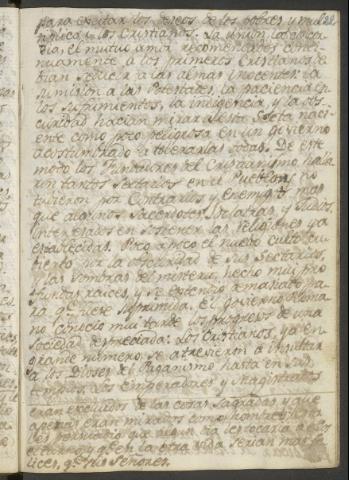 para excitar los deseos de los pobres y
los Cristianos. La union, la
el mutuo amor recomendados conti-
nuamente à los primeros Cristianos de-
bian seducir a las almas inocentes: la
sumision a las Potestades, la paciencia en
los sufrimientos, la indigencia, y la obs-
curidad hacian mirar la Secta naci-
ente como poco peligrosa en un govierno
acostumbrado a tolerarlas todas. De este
modo los Fundadores del Cristianismo, halla-
ron tantos Sectarios en el Pueblo, no
tuvieron por Contrarios y Enemigos mas
que algunos Sacerdotes Idolatras, y Judios,
interesados en sostener las religiones ya
establecidas. Poco a poco el nuevo culto cu-
bierto con la obscuridad de sus Sectarios
y las sombras del misterio, hecho mui pro-
fundas raices, y se extendio demasiado pa-
ra qe. fuese suprimida. El govierno Roma-
no conocio mui tarde los progresos de una
Sociedad despreciada: Los Cristianos, ya en
grande numero, se atrevieron à insultar
a los Dioses del Paganismo hasta en sus
templos: los emperadores y Magistrados
eran excluidos de las cosas Sagradas y que
apenas eran mirados como hombres, hasta
que en la otra vida serian mas fe-
lices, qe. sus Señores.